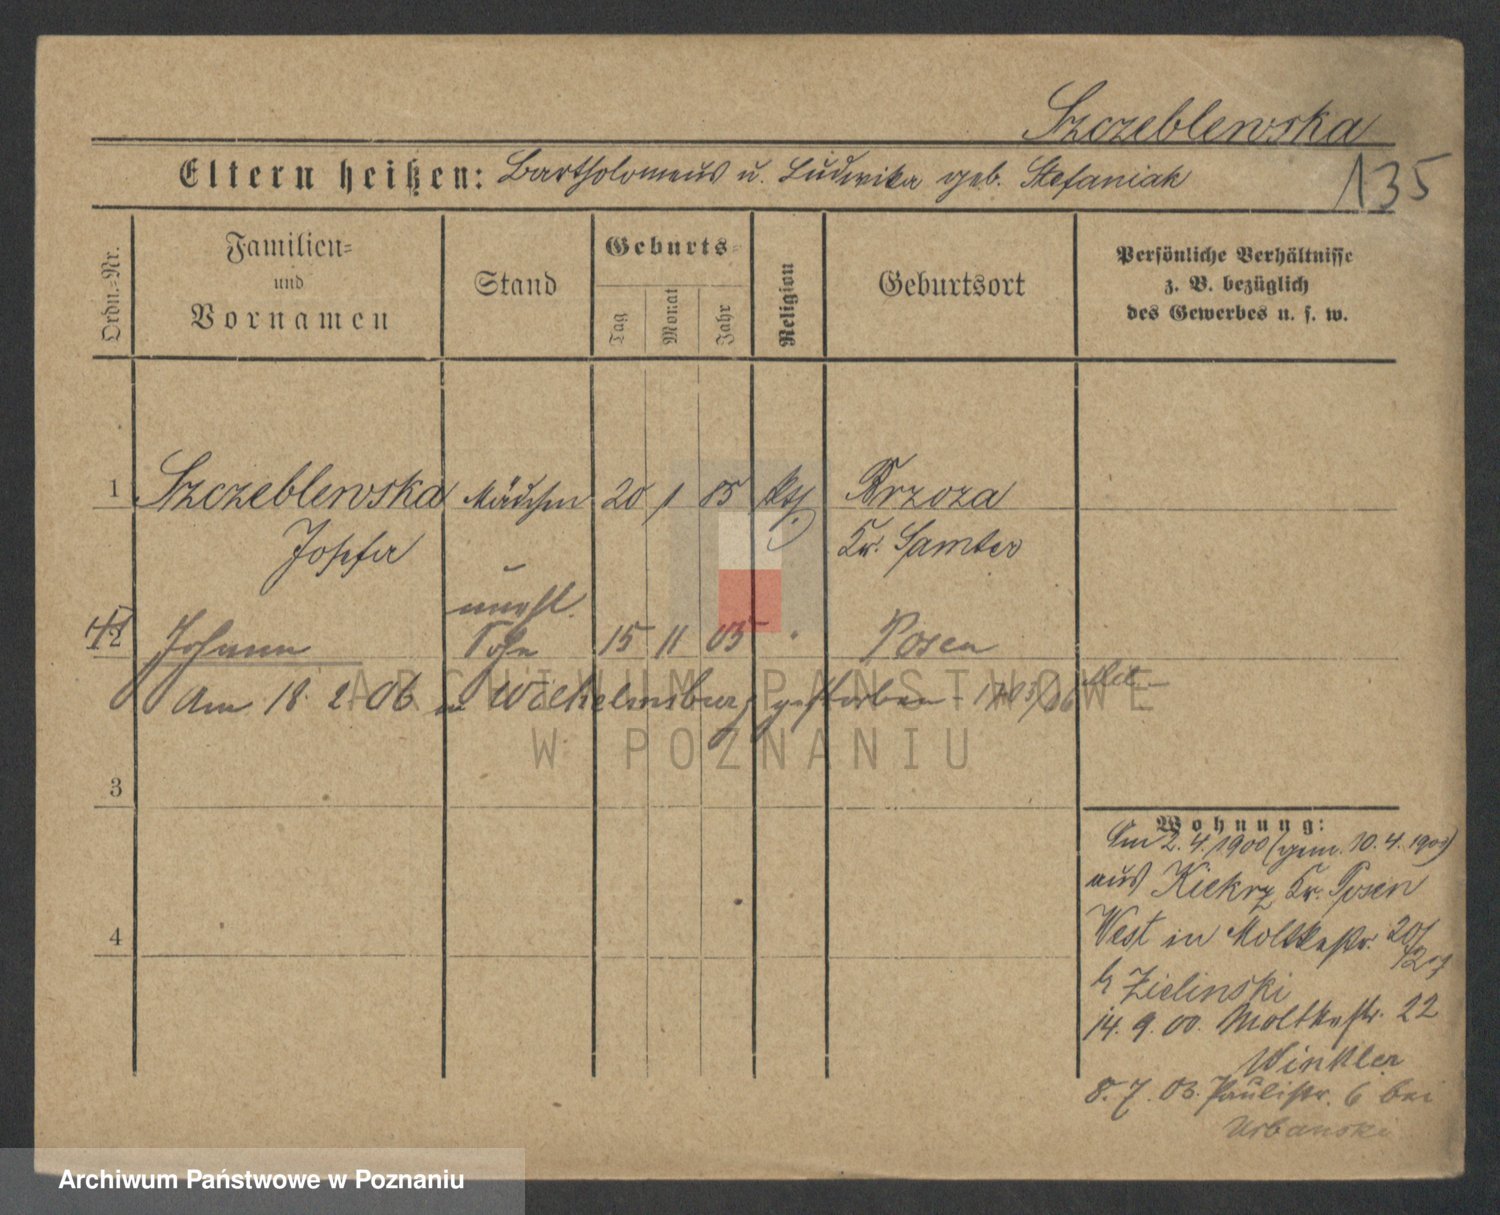 Szczeblewska
Eltern heißen: Bartholomeus u. Ludwika geb. Stefaniak
135
Ordn.-Nr.
Familien-
und
Vornamen
Stand
Geburts-
Tag
Monat
Jahr
Religion
Geburtsort
Persönliche Verhältnisse
z. B. bezüglich
des Gewerbes u. s. w.
1 Szczeblewska Mädchen 20 1 85 kath. Brzoza
Josefa Kr. Samter
unehl.
2 Johann Sohn 15 11 05 Posen
Am 18. 2. 06 in Wilhelmsburg gestorben
ARCHIWUM PAŃSTWOWE
W POZNANIU
3
4
Wohnung:
Am 2. 4. 1900 (gem. 10. 4. 1900)
aus Kiekrz Kr. Posen
West in Moltkestr. 20/
b Zielinski
14. 9. 00. Moltkestr. 22
Winkler
8. 7. 03. Paulistr. 6 bei
Urbanski
Archiwum Państwowe w Poznaniu